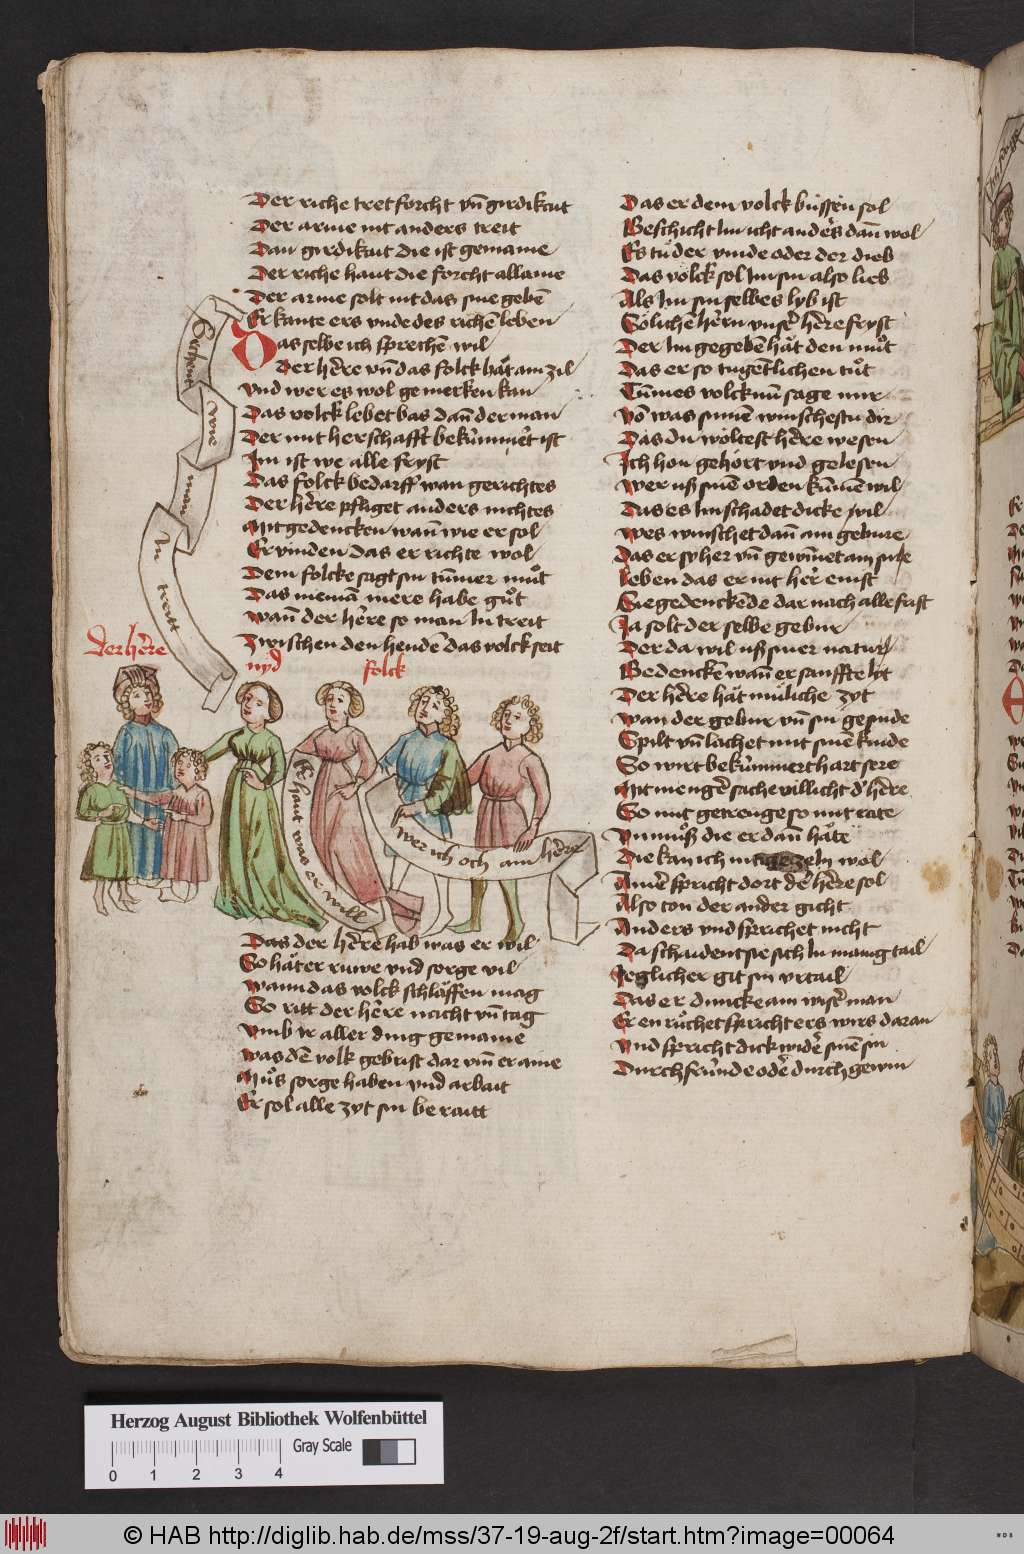 Der riche tret forcht vn̄ girdikait
Der arme nit anders treit
Dan girdikait die ist gemaine
Der riche haut die forcht allaine
Der arme solt nit das sine gebē
Erkante ers vnde des richē leben
Das selbe ich sprechē wil
Der hēre vn̄ das folck hǎt am zil
vnd wer es wol gemercken kan
Das volck lebet bas dan̄ der man
Der mit herschafft bekümmeret ist
Im ist we alle fryst
Das folck bedarff wan gerichtes
Der hēre pfliget anders nichtes
Mit gedencken wan̄ wie er sol
Ervinden das er richte wol
Dem folcke sagt sin tūmer můt
Das niemā mere habe gůt
wan̄ der hēre so man In treit
Zwischen den hendē das volck seit
Sehent
wie
man
In treitt
der hēre
nyd
folck
Er haut was er will
wer ich och ain hēre
Das der hēre hab was er wil
So hǎt er ruwe vnd sorge vil
wann das volck schlǎffen mag
So ritt der hēre nacht vn̄ tag
vmb ir aller ding gemaine
was dē volk gebrist dar vm̄ er aine
Můs sorge haben vnd arbait
Er sol alle zyt sin beraitt
Das er dem volck büssen sol
Beschicht Im icht anders dan̄ wol
Es tů der vinde oder der dieb
Das volck sol Im sin also lieb
Als Im sin selbes lyb ist
Sölichē hērn vnser hēre fryst
Der Im gegebē hǎt den můt
Das er so tugētlichen tůt
Tūmes volck nū sage mir
Vō was sinnē winschestu dir
Das du wöltest hēre wesen
Ich hon gehört vnd gelesen
Wer uß sinē orden kūmē wil
Das es Im schadet dicke vil
Wes winschet dan̄ ain gebure
Das er sy her vn̄ gewinet ain sure
Leben das er nit her enist
Sie gedenckēde dar nach alle frist
Ja solt der selbe gebur
Der da wil uß siner natur
Bedenckē wan̄ er sanffte lyt
Der hēre hǎt müliche zyt
wan der gebur vn̄ sin gesinde
Spilt vn̄ lachet mit sinē kinde
So wirt bekümmert hart sere
Mit mengē sache villicht d' hēre
So mit getrenge so mit rate
Vn můß die er dan̄ hǎte
Die kan ich nit gezeln wol
Ainē spricht dort dē hēre sol
Also ton der ander gicht
Anders vnd sprichet nicht
Da schaident sie sich In manig tail
Jeglicher git sin vrtail
Das er duncke ain wiser man
Er en růchet spricht ers wirs daran
Vnd spricht dick widē sinē sin
Durch frūnde odē durch gewin
Herzog August Bibliothek Wolfenbüttel
Gray Scale
0 1 2 3 4
© HAB http://diglib.hab.de/mss/37-19-aug-2f/start.htm?image=00064